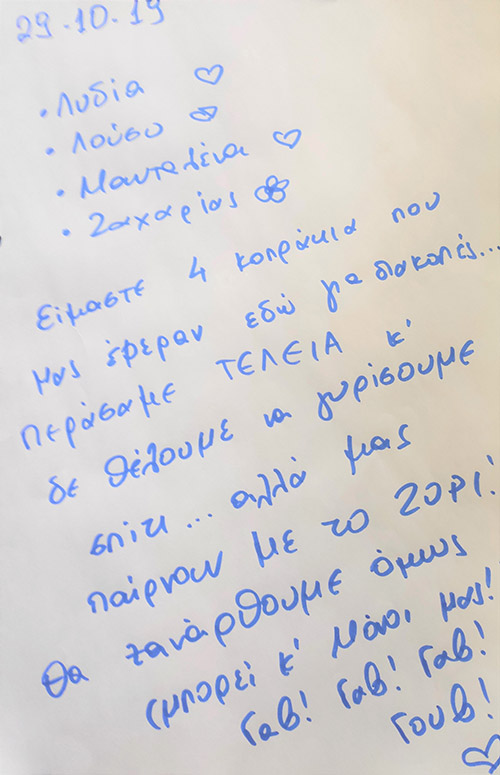 29.10.19
• Λυδία ♡
• Λούσυ
• Μανταλένα ♡
• Ζαχαρίας
Είμαστε 4 κοπράκια που
μας έφεραν εδώ για διακοπές...
περάσαμε ΤΕΛΕΙΑ κ'
δε θέλουμε να γυρίσουμε
σπίτι... αλλά μας
παίρνουν με το ΖΟΡΙ!
Θα ξανάρθουμε όμως
(μπορεί κ' μόνοι μας!
Γαβ! Γαβ! Γαβ!
Γουβ!
♡